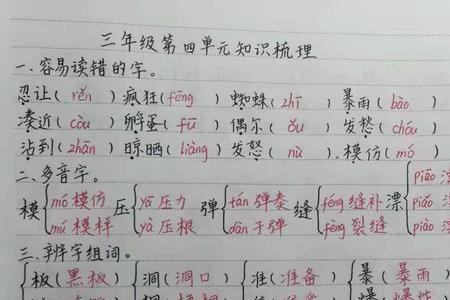 三年级第四单元知识梳理
一、容易读错的字。
忍让( rěn ) 疯狂( fēng ) 蜘蛛( zhī ) 暴雨( bào )
凑近( còu ) 孵蛋( fū ) 偶尔( ǒu ) 发愁( chóu )
沾到( zhān ) 晾晒( liàng ) 发怒( nù ) 模仿( mó )
二、多音字。
模{ mó 模仿 压{ yā 压力 弹{ tán 弹奏 缝{ féng 缝补 漂{ piāo
piǎo
mú 模样 yà 压根 dàn 子弹 fèng 裂缝 piào
三、辨字组词。
板( 黑板 ) 洞( 洞口 ) 准( 准备 ) 暴( 暴雨 )